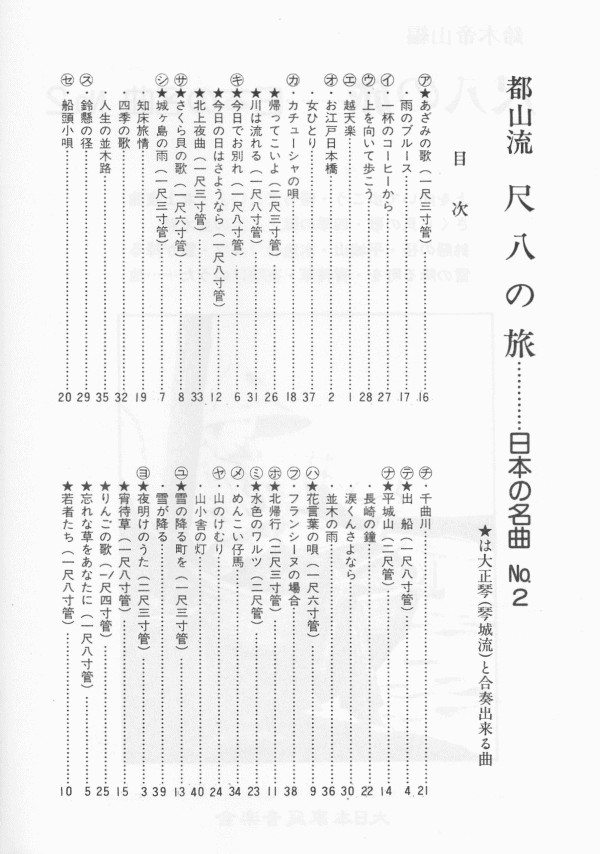 都山流 尺八の旅………日本の名曲 No.2
★は大正琴（琴城流）と合奏出来る曲
目 次
㋐★あざみの歌（一尺三寸管）……16
・雨のブルース……17
㋑・一杯のコーヒーから……27
㋒・上を向いて歩こう……28
㋓・越天楽……1
㋔・お江戸日本橋……2
・女ひとり……37
㋕・カチューシャの唄……18
★帰ってこいよ（二尺三寸管）……26
★川は流れる（一尺八寸管）……31
㋖★今日でお別れ（一尺八寸管）……6
★今日の日はさようなら（一尺八寸管）……12
★北上夜曲（一尺三寸管）……33
㋚★さくら貝の歌（一尺六寸管）……8
㋛★城ヶ島の雨（一尺三寸管）……7
・知床旅情……19
・四季の歌……32
・人生の並木路……35
㋜・鈴懸の径……29
㋝・船頭小唄……20
㋠・千曲川……21
㋢★出船（一尺八寸管）……4
㋤★平城山（二尺管）……14
・長崎の鐘……22
・涙くんさよなら……30
・並木の雨……36
㋩★花言葉の唄（一尺六寸管）……9
㋫・フランシーヌの場合……38
㋭★北帰行（二尺三寸管）……11
㋯★水色のワルツ（二尺管）……23
㋱・めんこい仔馬……34
㋳・山のけむり……24
・山小舎の灯……40
㋴★雪の降る町を（一尺三寸管）……13
・雪が降る……39
㋵★夜明けのうた（二尺三寸管）……3
★宵待草（一尺八寸管）……15
★りんごの歌（一尺四寸管）……25
★忘れな草をあなたに（一尺八寸管）……5
★若者たち（一尺八寸管）……10